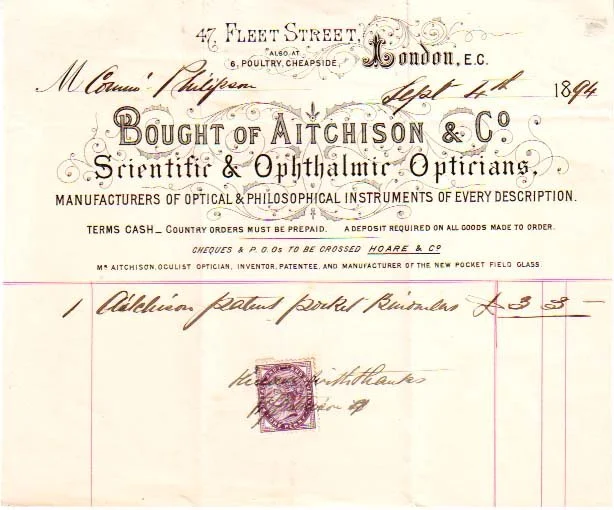 47, FLEET STREET,
ALSO AT
6, POULTRY, CHEAPSIDE,
London, E.C.
M Philipson
Sept 4th 1894
BOUGHT OF AITCHISON & Co
Scientific & Ophthalmic Opticians,
MANUFACTURERS OF OPTICAL & PHILOSOPHICAL INSTRUMENTS OF EVERY DESCRIPTION.
TERMS CASH_ COUNTRY ORDERS MUST BE PREPAID. A DEPOSIT REQUIRED ON ALL GOODS MADE TO ORDER.
CHEQUES & P.O.Os TO BE CROSSED HOARE & Co
Mr AITCHISON, OCULIST OPTICIAN, INVENTOR, PATENTEE, AND MANUFACTURER OF THE NEW POCKET FIELD GLASS
1 Aitchison patent pocket Binoculars £ 3 3 —
with thanks